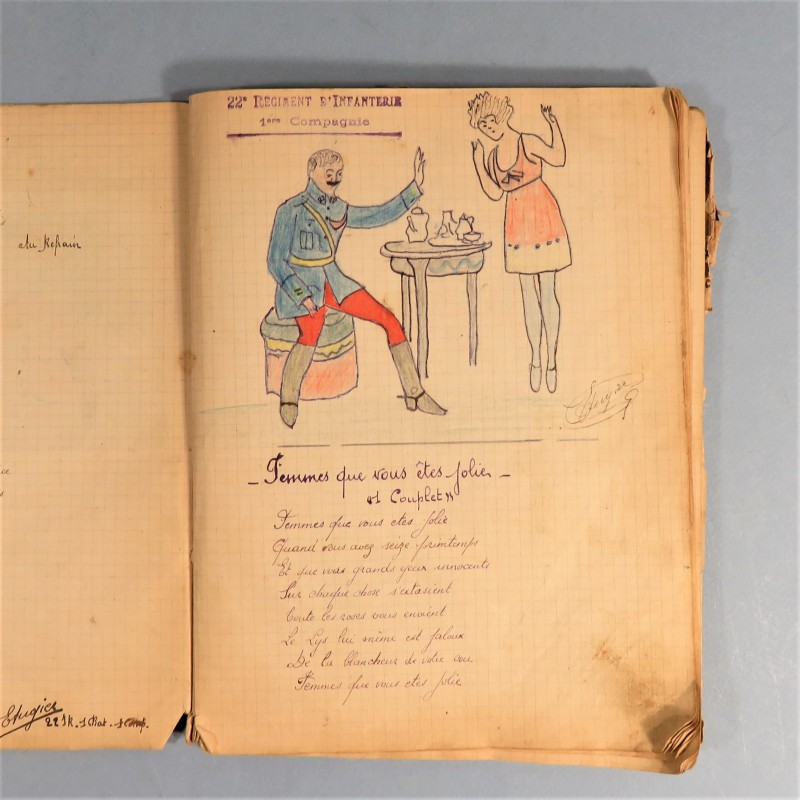 du Refrain
22e RÉGIMENT D'INFANTERIE
1ère Compagnie
- Femmes que vous êtes Jolie -
«1 Couplet»
Femmes que vous etes Jolie
Quand vous avez seize printemps
Et que vos grands yeux innocents
Sur chaque chose s'extasient
Toute les roses vous envient
Le Lys lui même est Jaloux
De la blancheur de votre cou
Femmes que vous etes Jolie
22 I R - 1 Bat - 1 Comp.